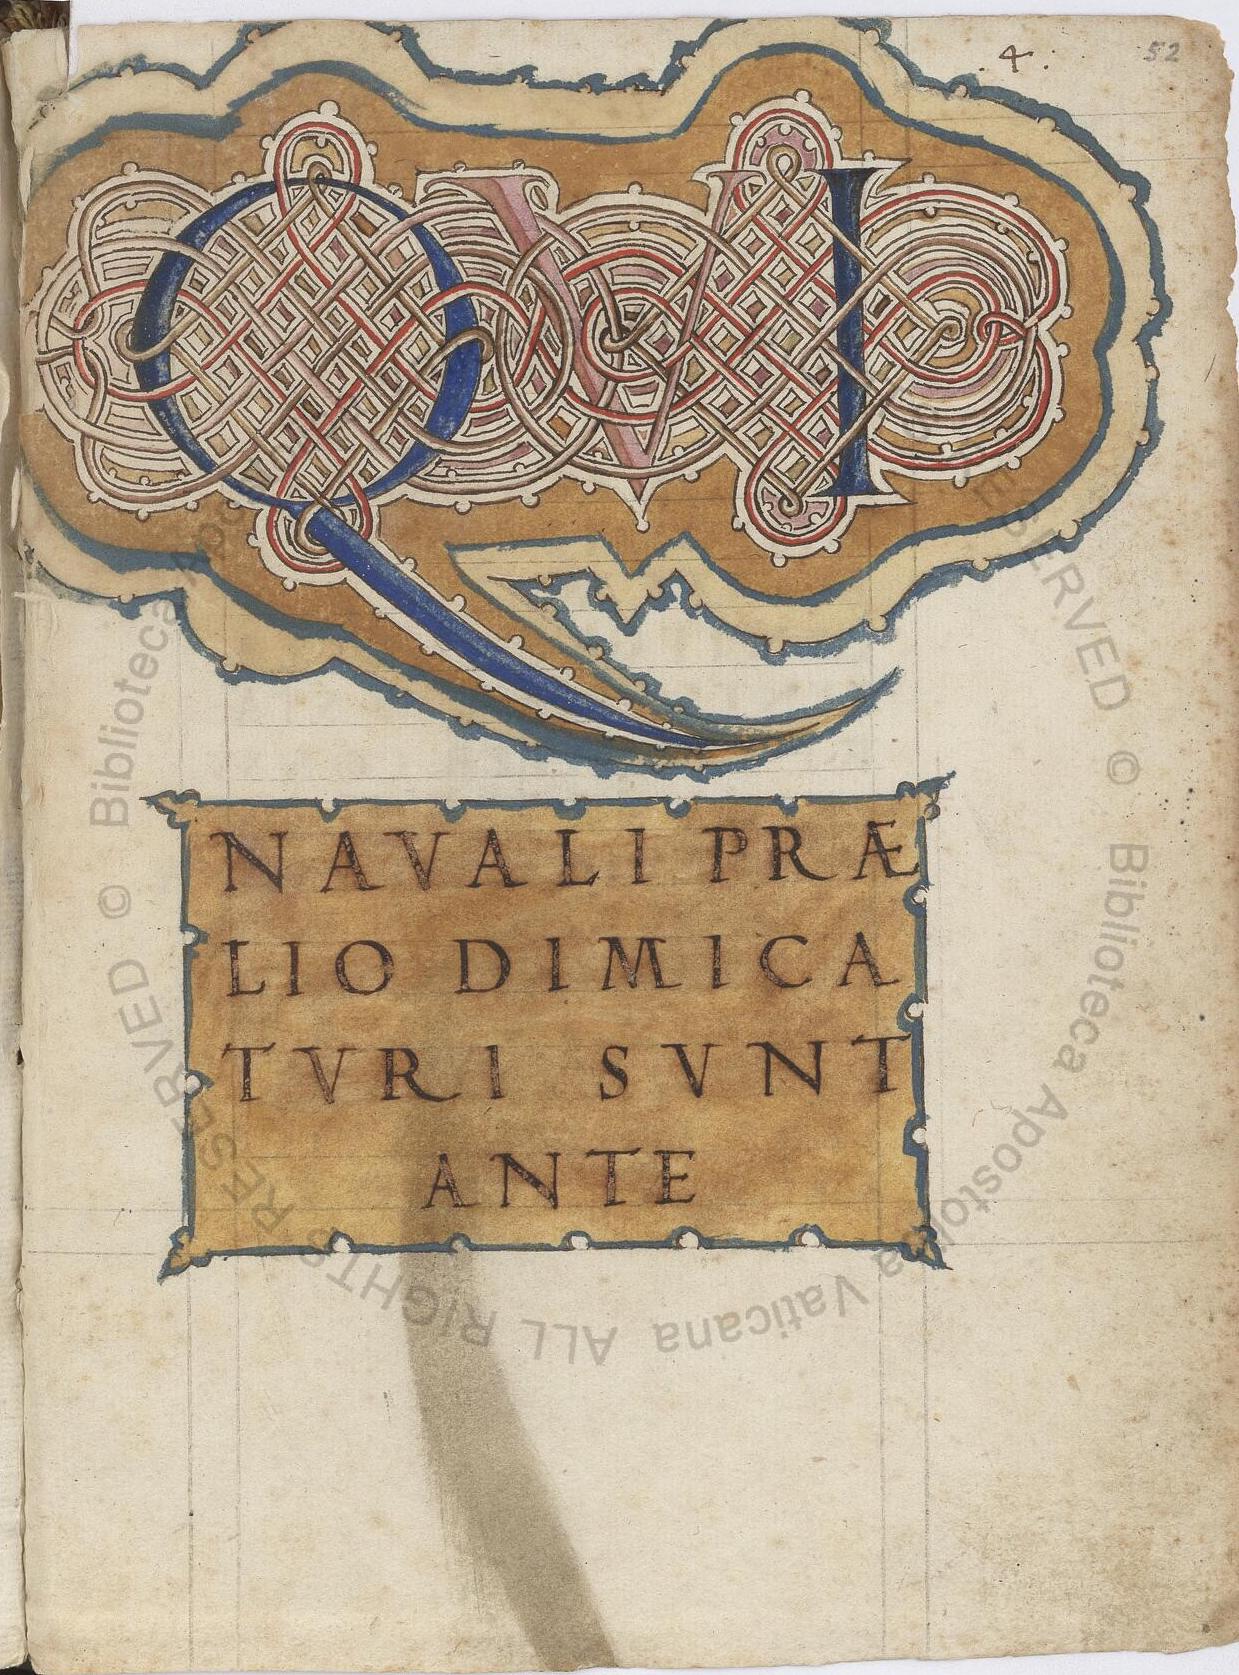 .4. 52
QVI
NAVALI PRÆ
LIO DIMICA
TVRI SVNT
ANTE
© Biblioteca Apostolica Vaticana ALL RIGHTS RESERVED © Biblioteca Apos
RESERVED